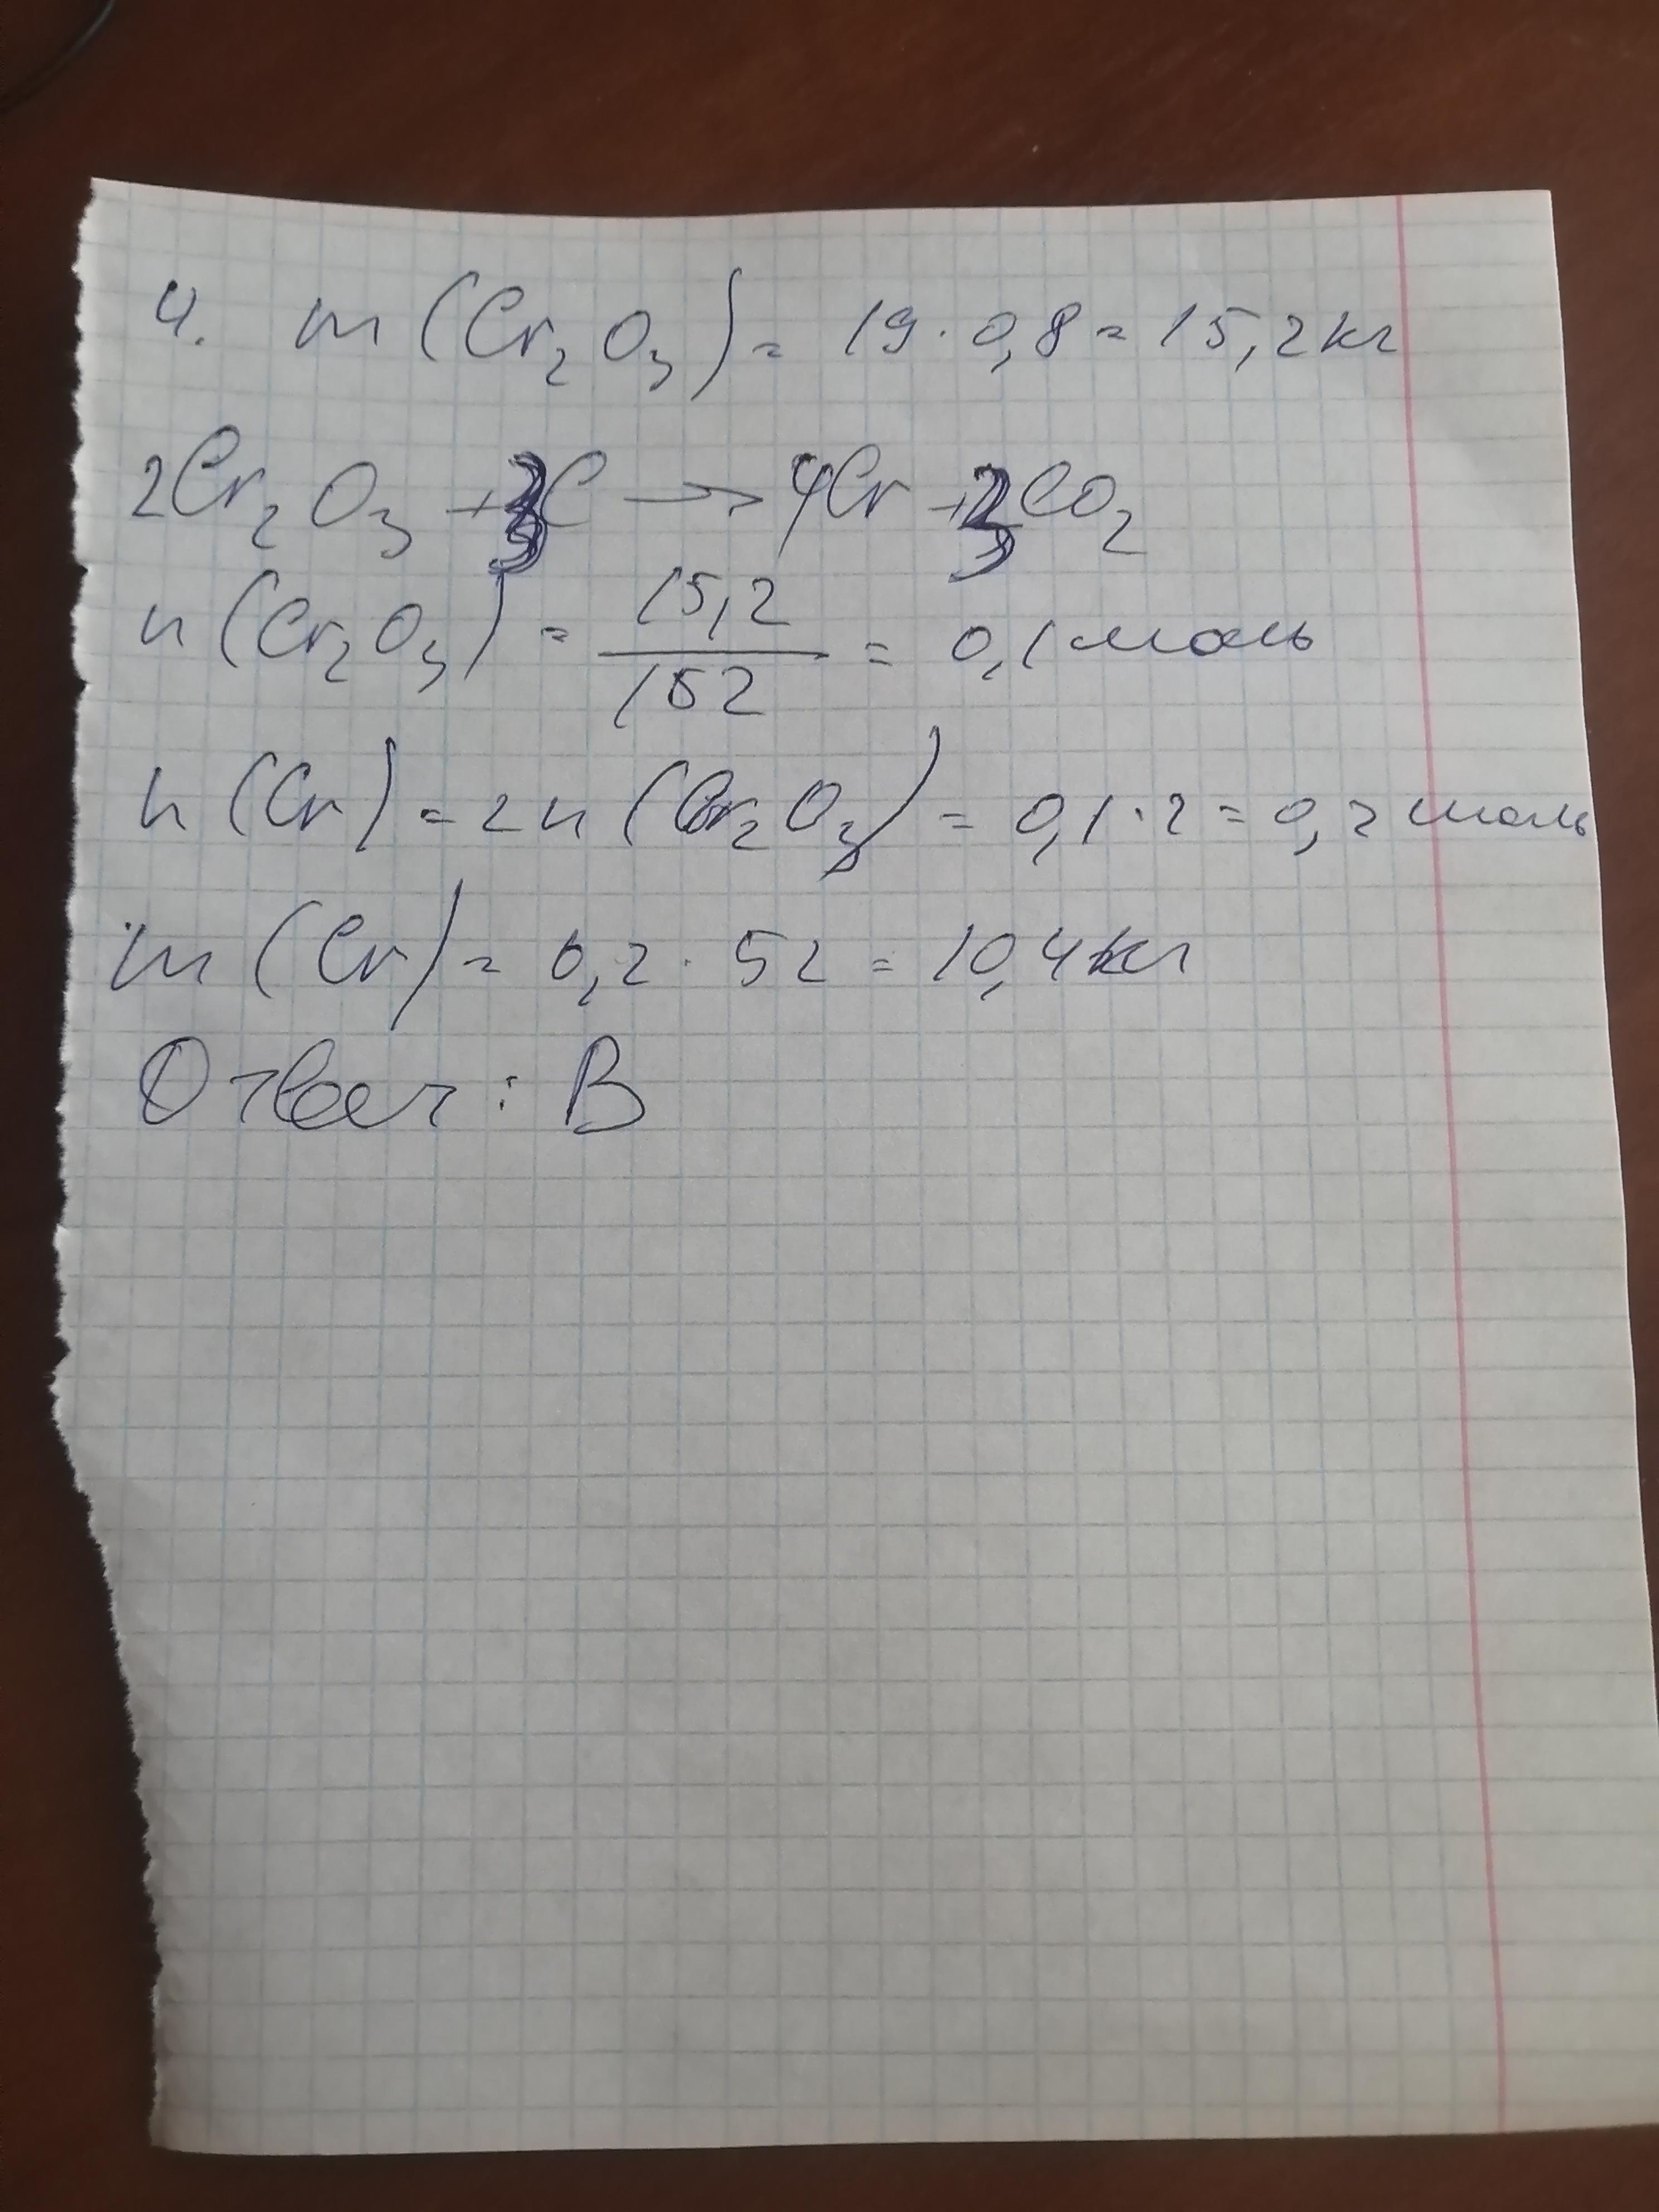 4. m(Cr₂O₃) = 19·0,8 = 15,2 кг
2Cr₂O₃ + 3C → 4Cr + 3CO₂
n(Cr₂O₃) = 15,2/152 = 0,1 моль
n(Cr) = 2n(Cr₂O₃) = 0,1·2 = 0,2 моль
m(Cr) = 0,2·52 = 10,4 кг
Ответ: В